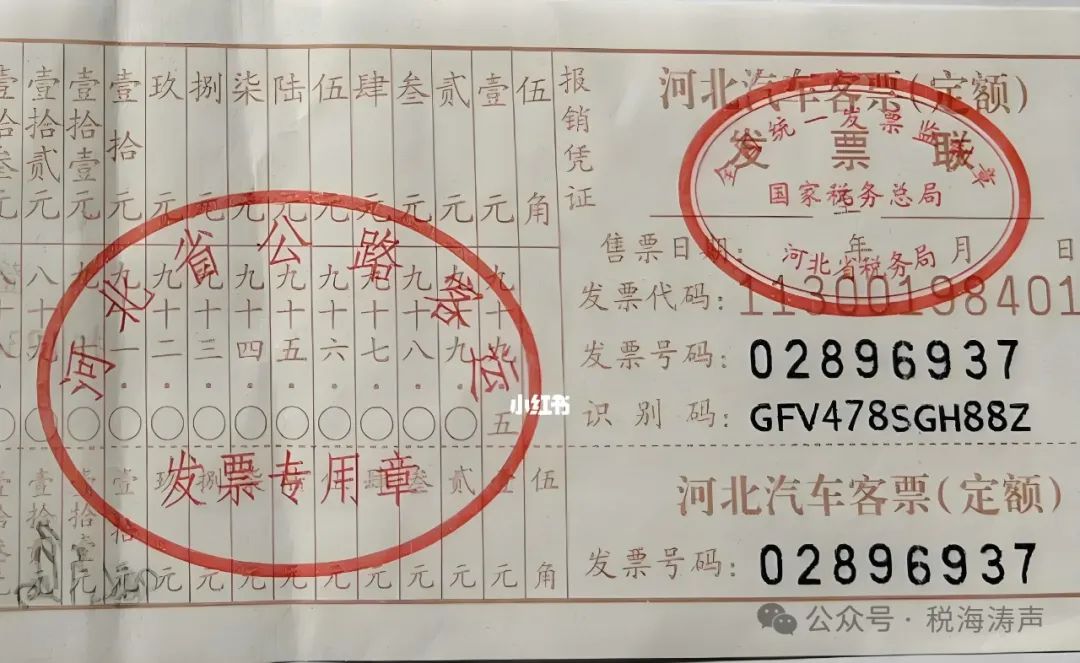 河北汽车客票(定额)
发票联
全国统一发票监制章
国家税务总局
河北省税务局
至
售票日期: 年 月 日
发票代码:11300198401
发票号码:02896937
识别码:GFV478SGH88Z
报销凭证
伍角
壹元
贰元
叁元
肆元
伍元
陆元
柒元
捌元
玖元
壹拾元
壹拾壹元
壹拾贰元
壹拾叁元
九十九.五
九十九.〇
九十八.〇
九十七.〇
九十六.〇
九十五.〇
九十四.〇
九十三.〇
九十二.〇
九十一.〇
九十.〇
八十九.〇
八十八.〇
河北省公路客运
发票专用章
小红书
河北汽车客票(定额)
发票号码:02896937
伍角
壹元
贰元
叁元
肆元
伍元
陆元
柒元
捌元
玖元
壹拾元
壹拾壹元
壹拾贰元
壹拾叁元
公众号·税海涛声